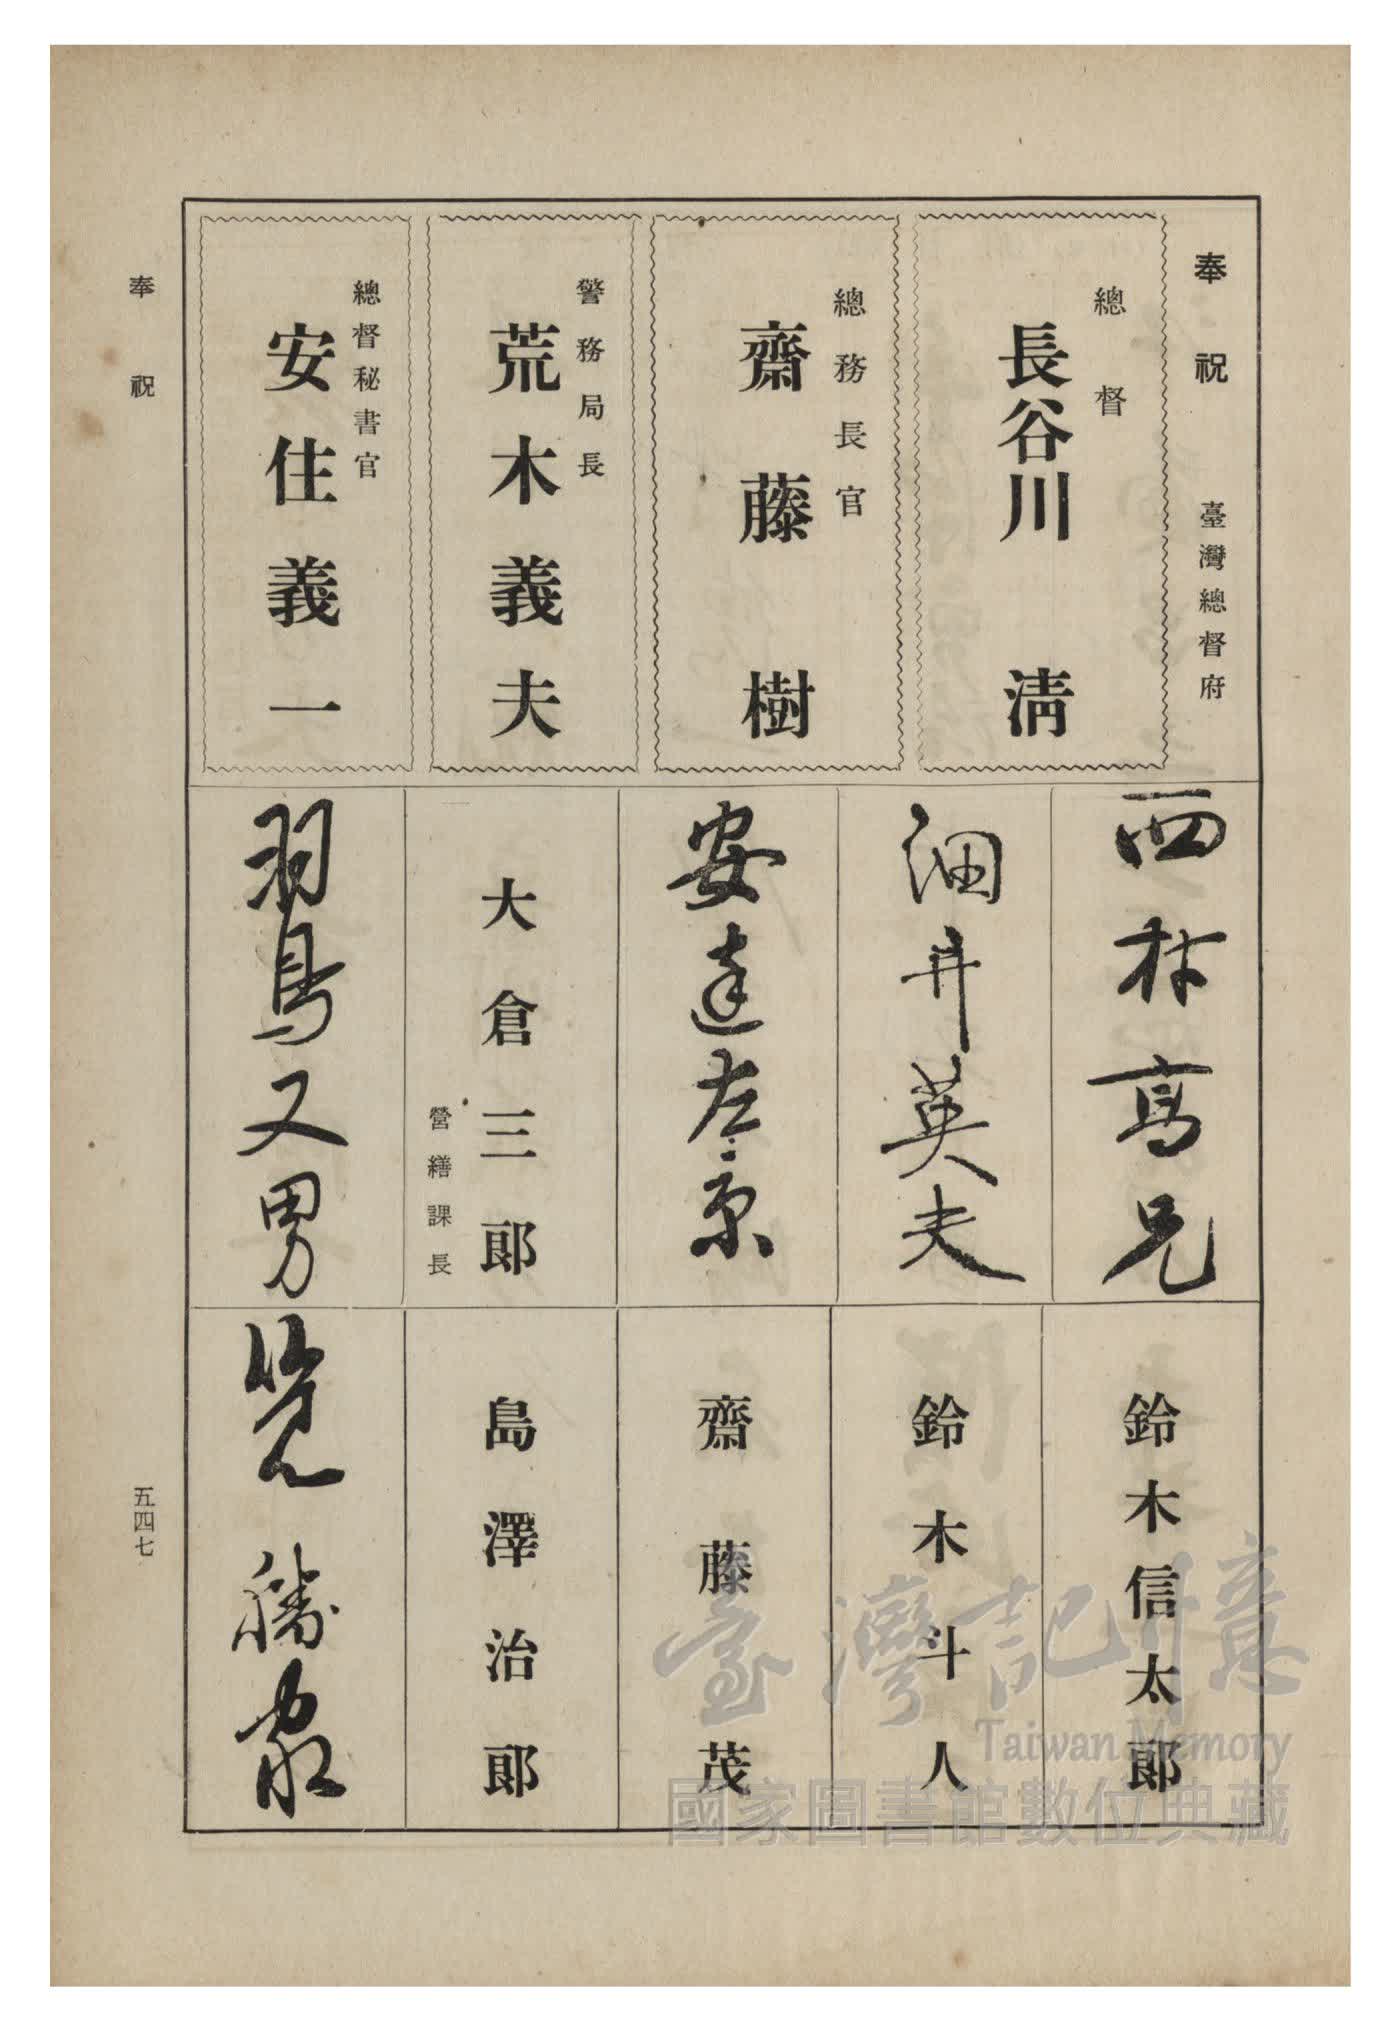 奉祝
臺灣總督府
總督
長谷川清
總務長官
齋藤樹
警務局長
荒木義夫
總督秘書官
安住義一
西村高兄
細井英夫
安達左京
大倉三郎
營繕課長
羽鳥又男
鈴木信太郎
鈴木斗人
齋藤茂
島澤治郎
奉祝
五四七
臺灣記憶
Taiwan Memory
國家圖書館數位典藏